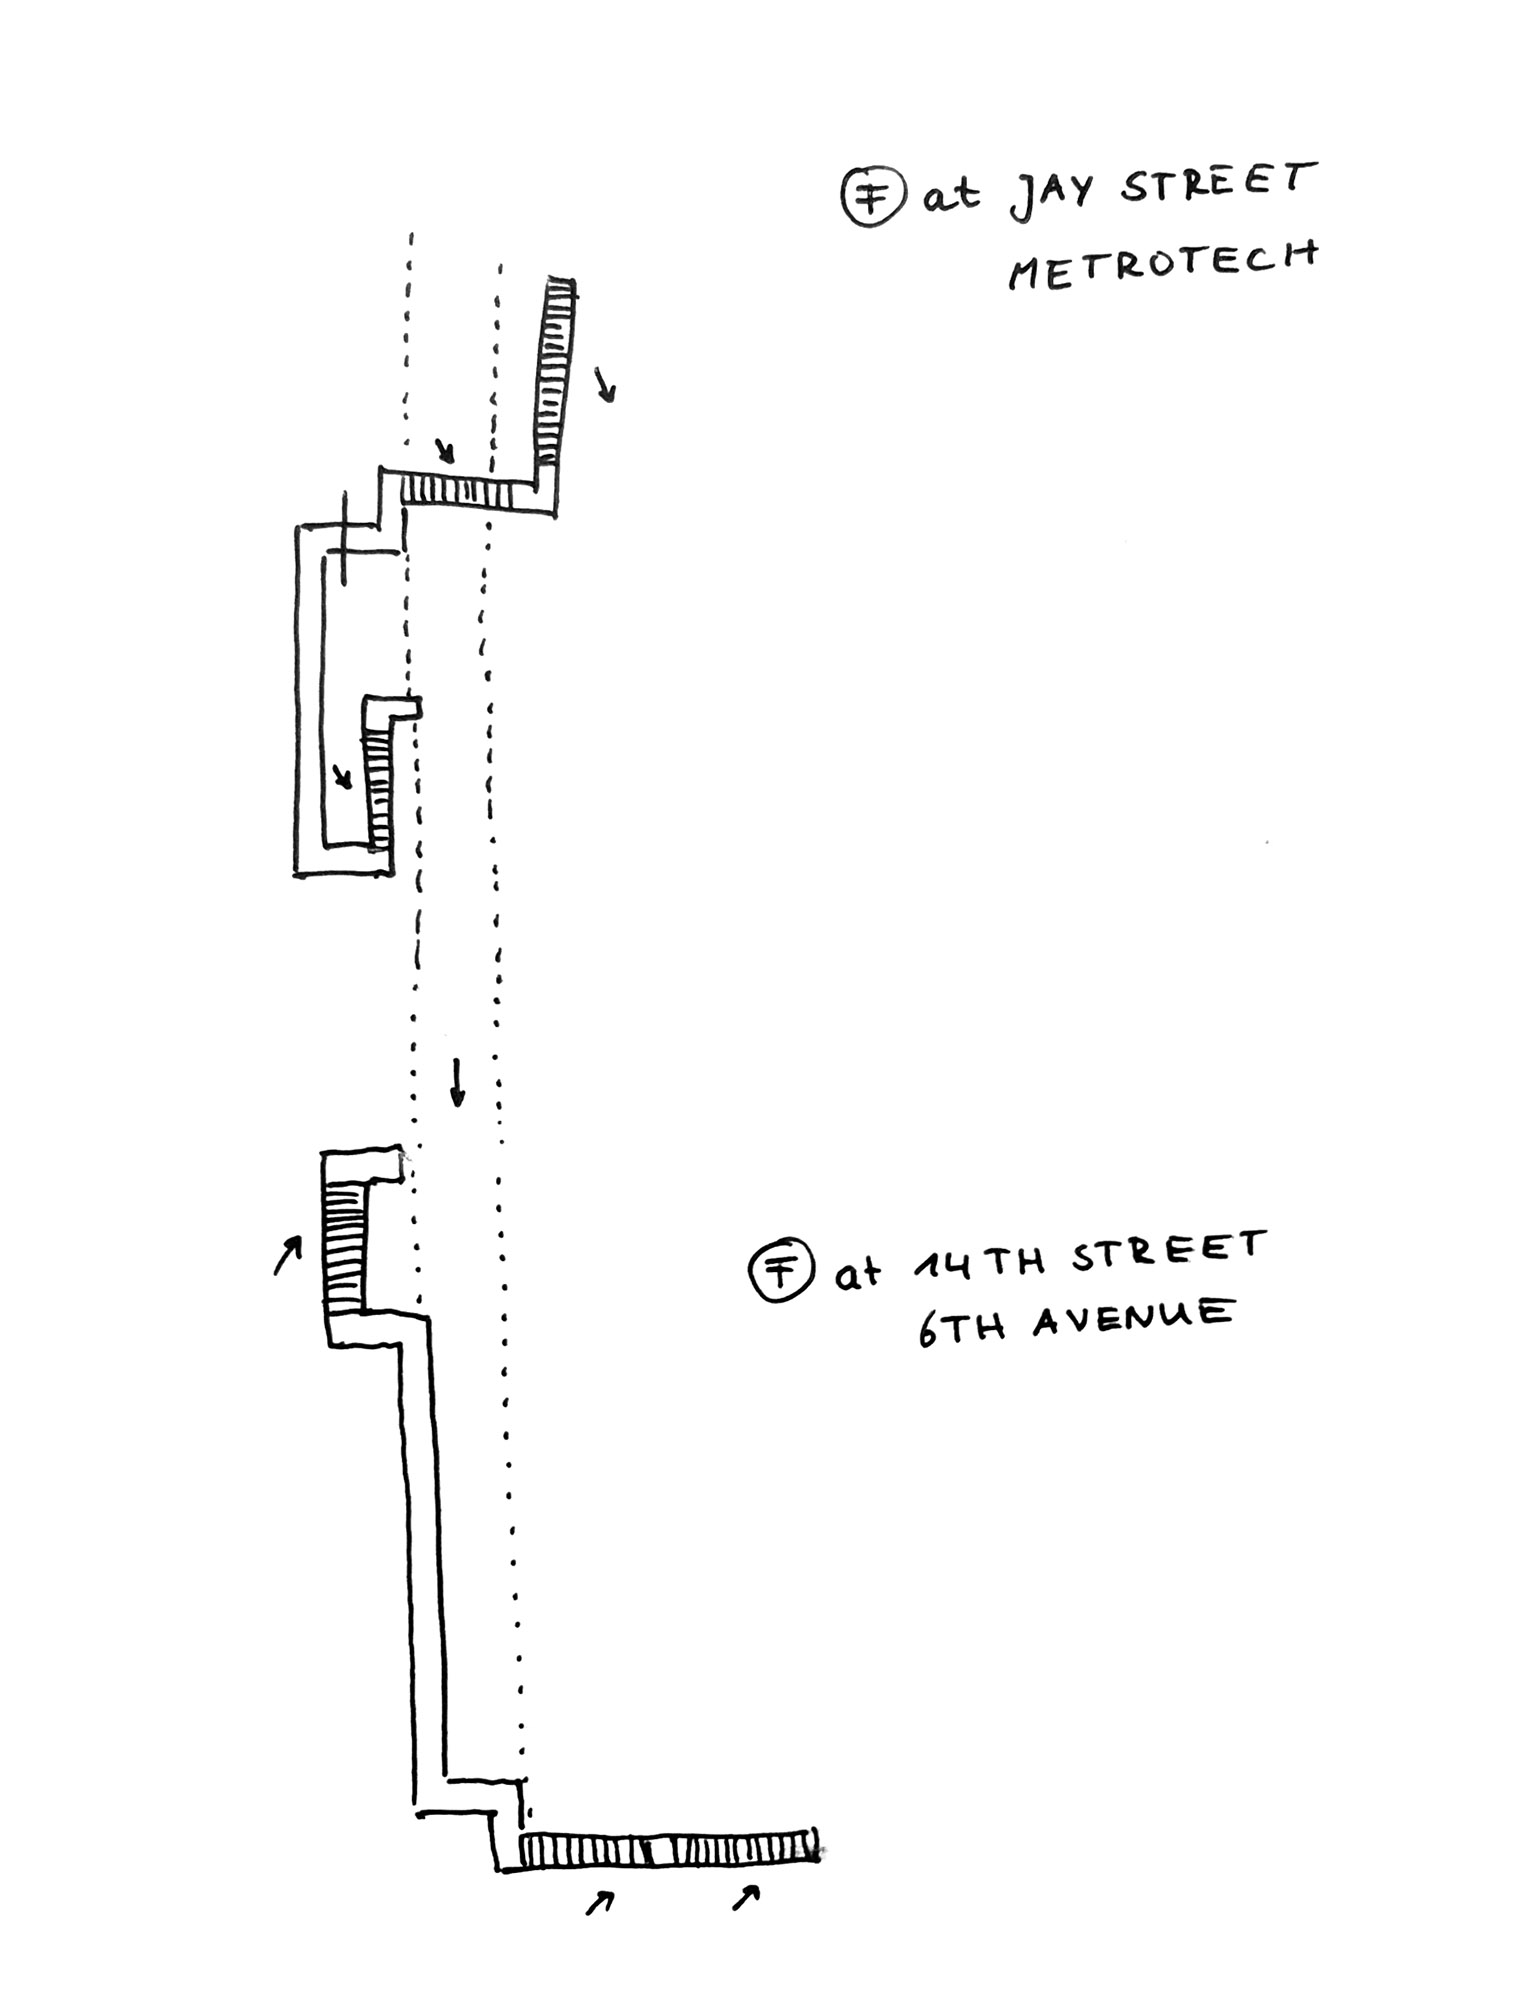 F at JAY STREET
METROTECH
F at 14TH STREET
6TH AVENUE